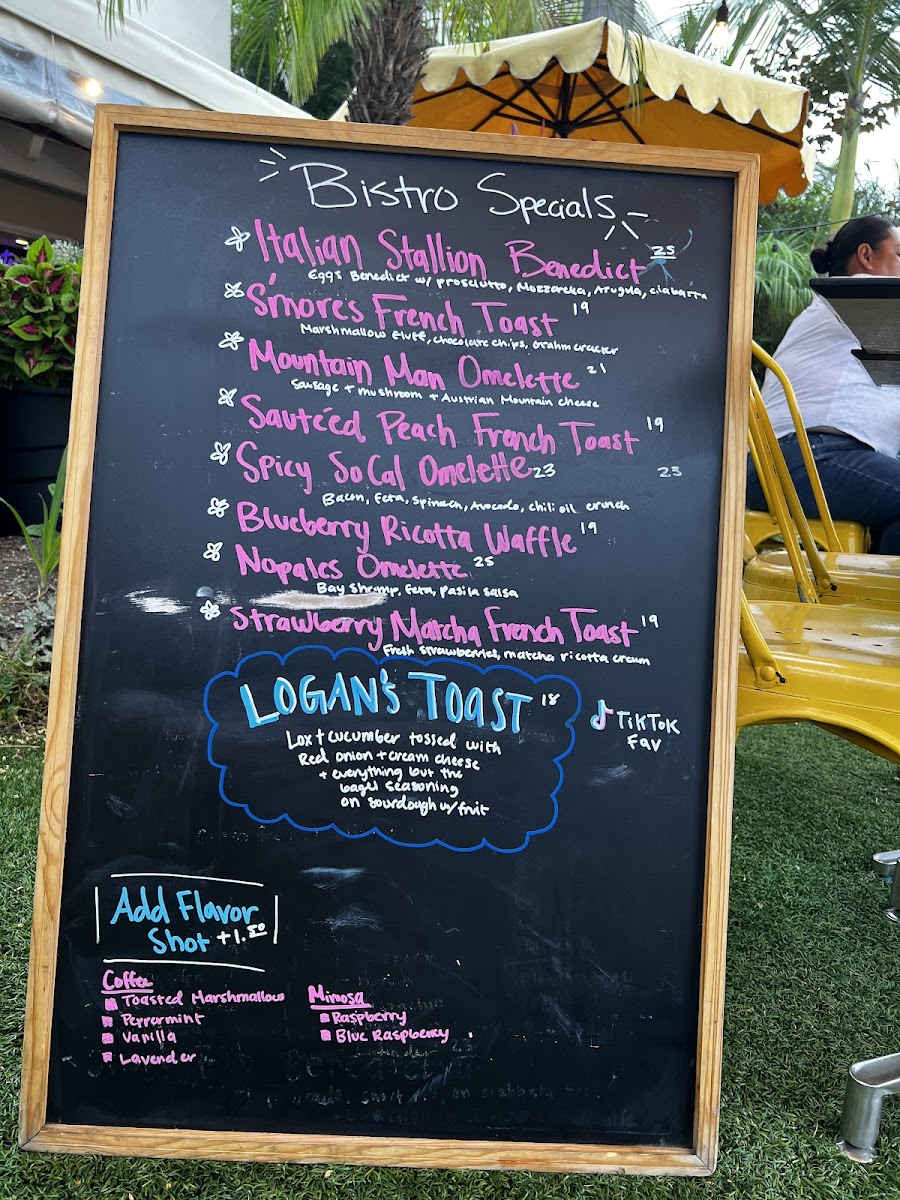 Bistro Specials
Italian Stallion Benedict 25
Eggs Benedict w/ prosciutto, Mozzarella, Arugula, ciabatta
S'mores French Toast 19
Marshmallow fluff, chocolate chips, Grahm cracker
Mountain Man Omelette 21
Sausage + mushroom + Austrian Mountain cheese
Sauteéd Peach French Toast 19
Spicy SoCal Omelette 23 23
Bacon, feta, spinach, Avocado, chili oil crunch
Blueberry Ricotta Waffle 19
Nopales Omelette 25
Bay Shrimp, feta, pasila salsa
Strawberry Matcha French Toast 19
Fresh strawberries, matcha ricotta cream
LOGAN'S TOAST 18
TikTok
Fav
Lox + cucumber tossed with
Red onion + cream cheese
+ everything but the
bagel seasoning
on sourdough w/ fruit
Add Flavor
Shot +1.50
Coffee
Toasted Marshmallow
Peppermint
Vanilla
Lavender
Mimosa
Raspberry
Blue Raspberry